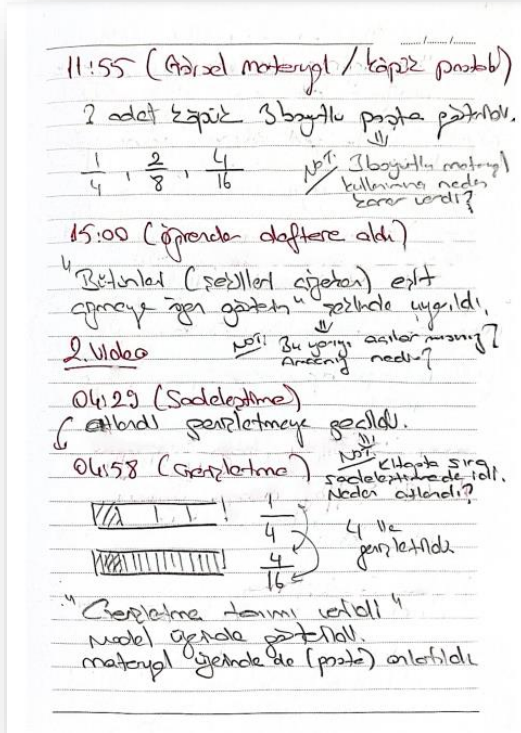 ...../...../.....
11:55 (Görsel materyal / köpük pasta)
2 adet köpük 3 boyutlu pasta gösterildi.
1/4, 2/8, 4/16
NOT: 3 boyutlu materyal
kullanımına neden
karar verdi?
15:00 (öğrenciler deftere aldı)
"Bütünleri (şekilleri çizerken) eşit
çizmeye özen gösterin" şeklinde uyarıldı.
NOT: Bu uyarıyı açılar mısınız?
Amacınız nedir?
2. Video
04:29 (Sadeleştirme)
atlandı genişletmeye geçildi.
NOT: Kitapta sıra
sadeleştirmede idi.
Neden atlandı?
04:58 (Genişletme)
1/4
4/16
4 ile
genişletildi
"Genişletme tanımı verildi"
Model üzerinde gösterildi.
materyal üzerinde de (pasta) anlatıldı